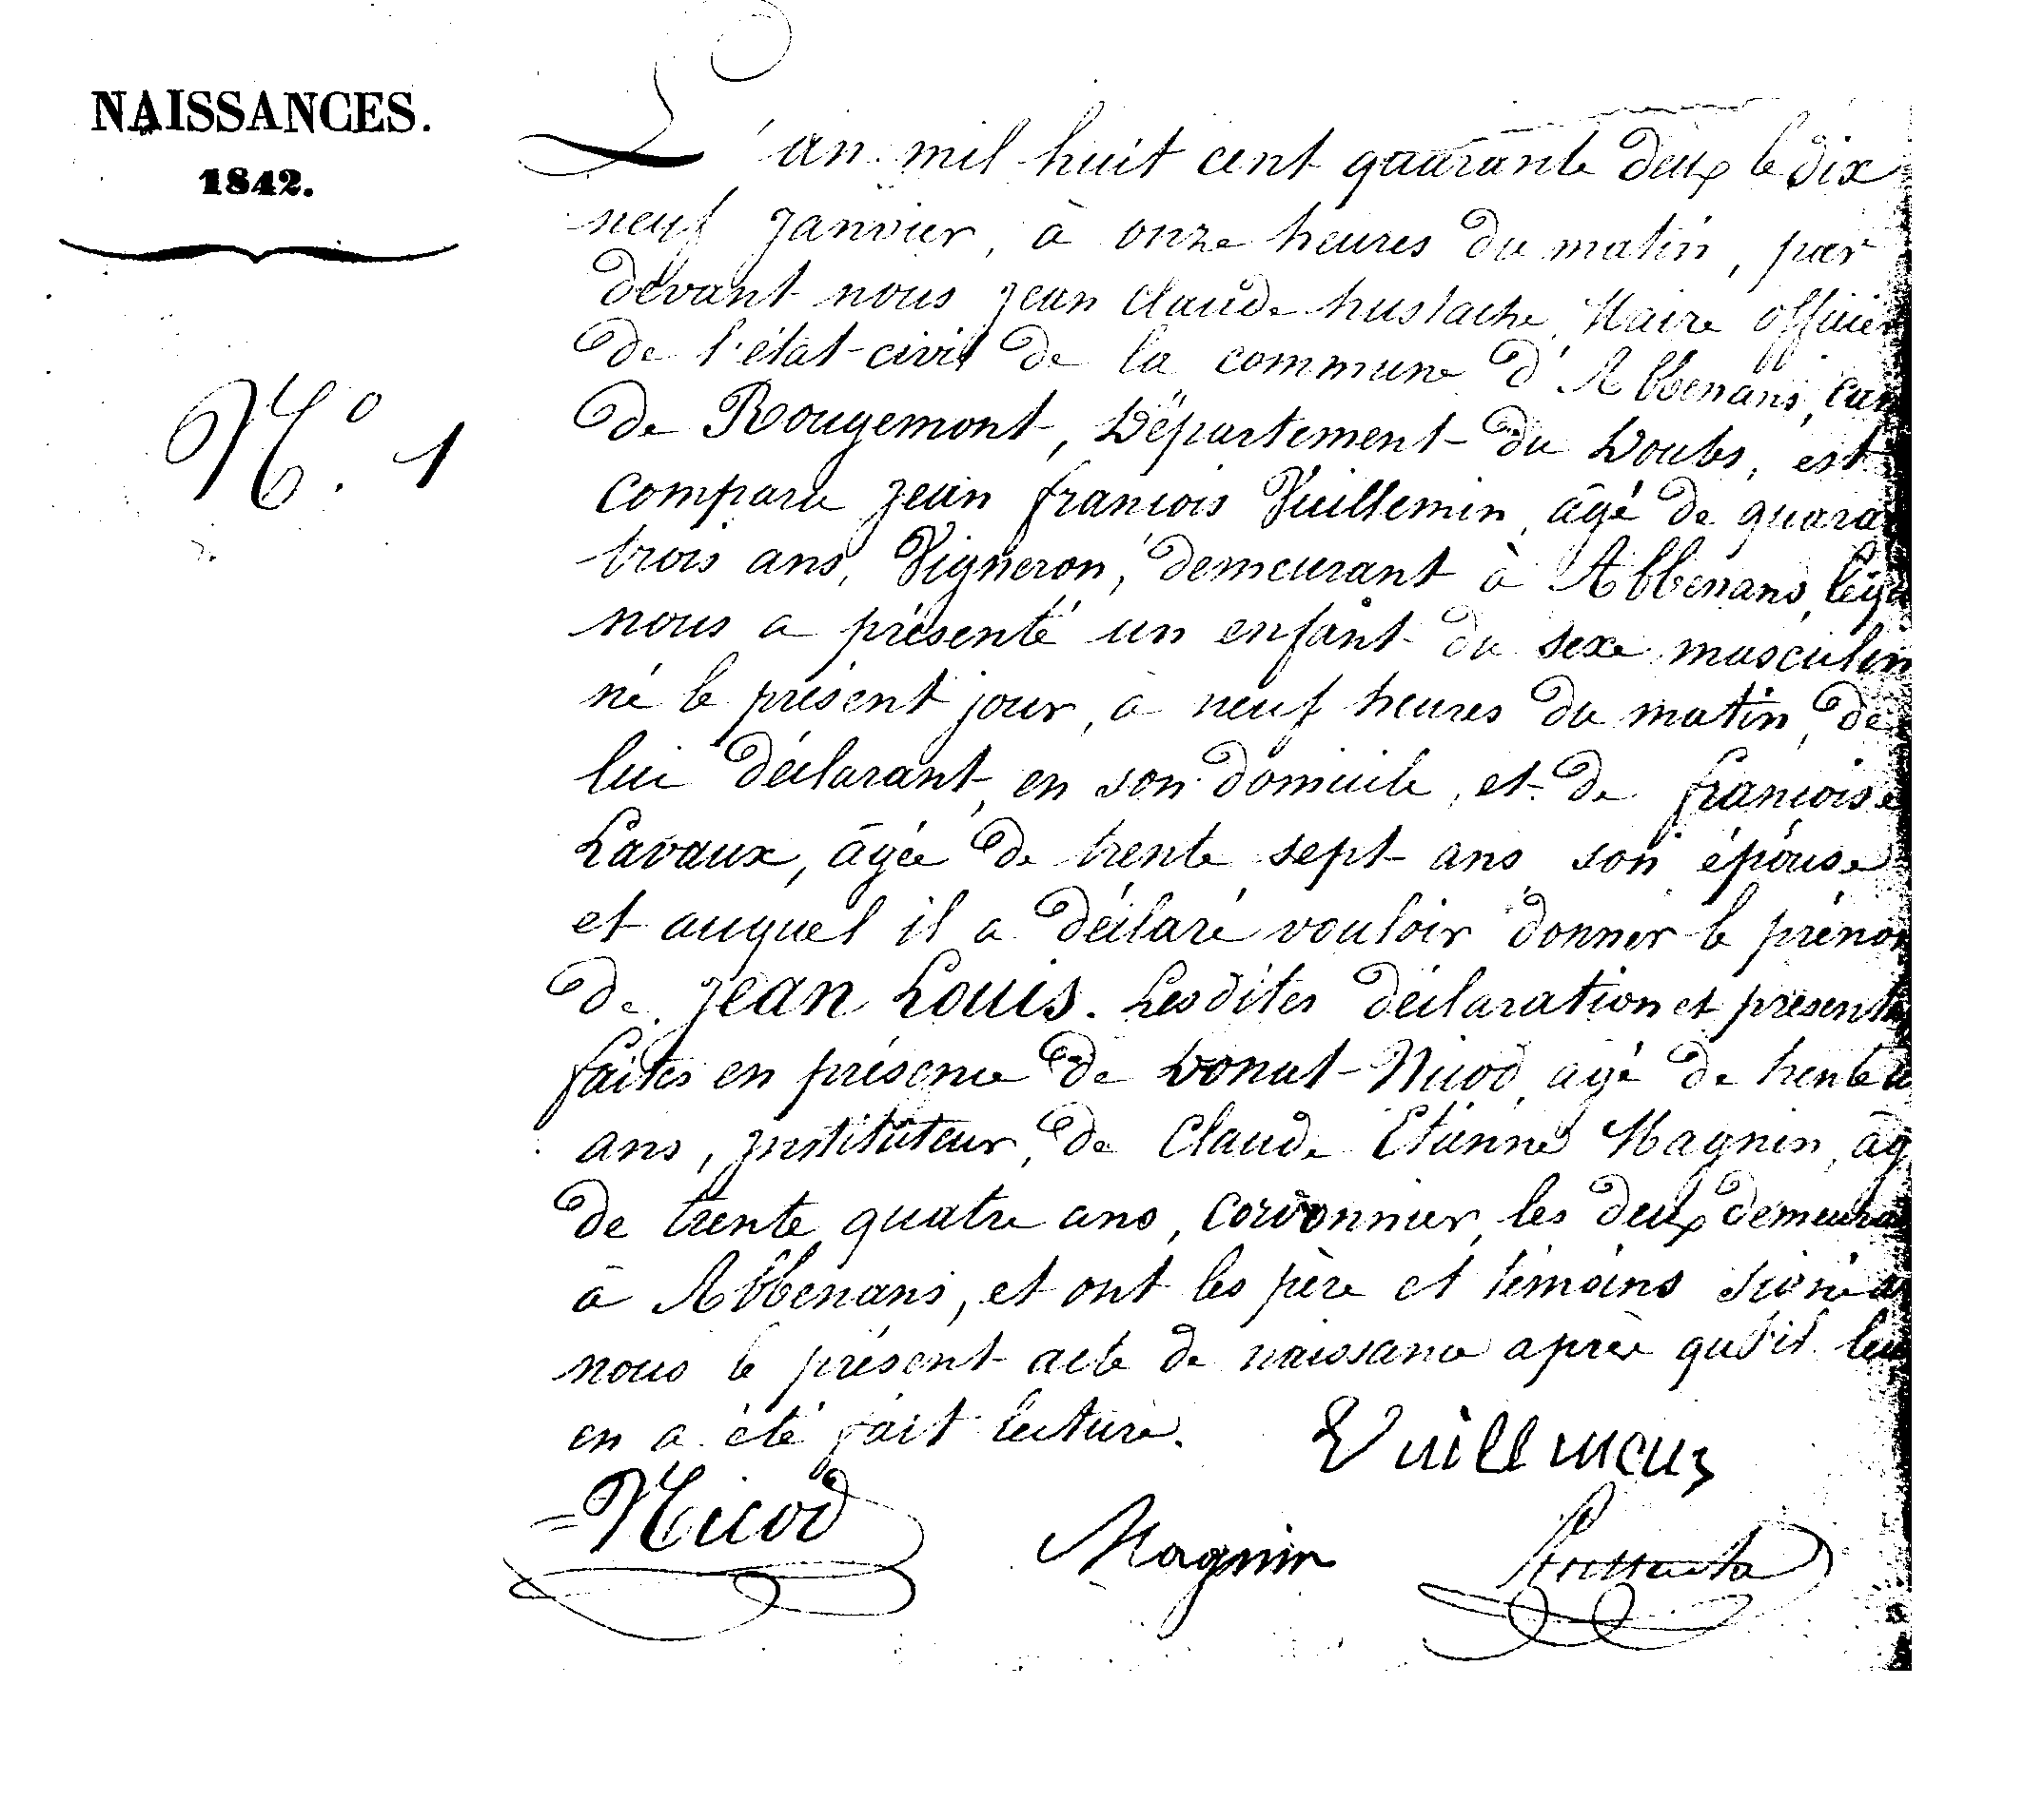 NAISSANCES.
1842.
N.o 1
L'an mil huit cent quarante deux le dix
neuf Janvier, à onze heures du matin, par
devant nous Jean Claude hustache, Maire officier
de l'état-civil de la commune d'Abbenans, can
de Rougemont, Département du Doubs, est
comparu Jean françois Vuillemin, âgé de quaran
trois ans, Vigneron, demeurant à Abbenans, lequ
nous a présenté un enfant du sexe masculin
né le présent jour, à neuf heures du matin, de
lui déclarant, en son domicile, et de françoise
Lavaux, âgée de trente sept ans, son épouse
et auquel il a déclaré vouloir donner le prénom
de Jean Louis. Lesdites déclaration et présent
faites en présence de Donat Nicod, agé de trente
ans, Instituteur, de Claude Etienne Magnin, âg
de trente quatre ans, Cordonnier, les deux demeura
à Abbenans, et ont les père et témoins signé
nous le présent acte de naissance après qu'il leu
en a été fait lecture.
Vuillemin
Nicod
Magnin